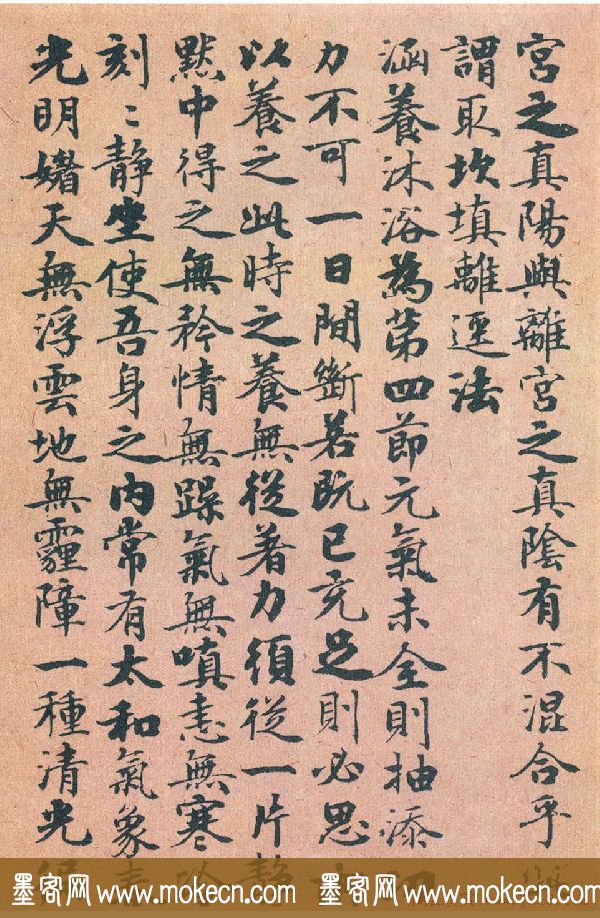 宮之真陽與離宮之真陰有不混合乎
謂取坎填離逕法
涵養沐浴為第四節元氣未全則抽添
力不可一日間斷若既已充足則必思
以養之此時之養無從着力須從一片靜
默中得之無矜情無躁氣無嗔恚無寒
刻〻靜坐使吾身之內常有太和氣象
光明嬥天無浮雲地無霾障一種清光
墨客网 www.mokecn.com 墨客网 www.mokecn.com